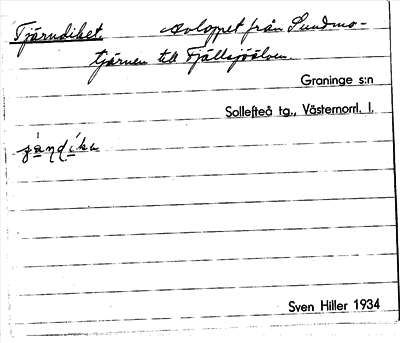 Tjärndiket. Avloppet från Sundmo-
tjärnen till Fjällsjöälven.
Graninge s:n
Sollefteå tg., Västernorrl. l.
Sven Hiller 1934